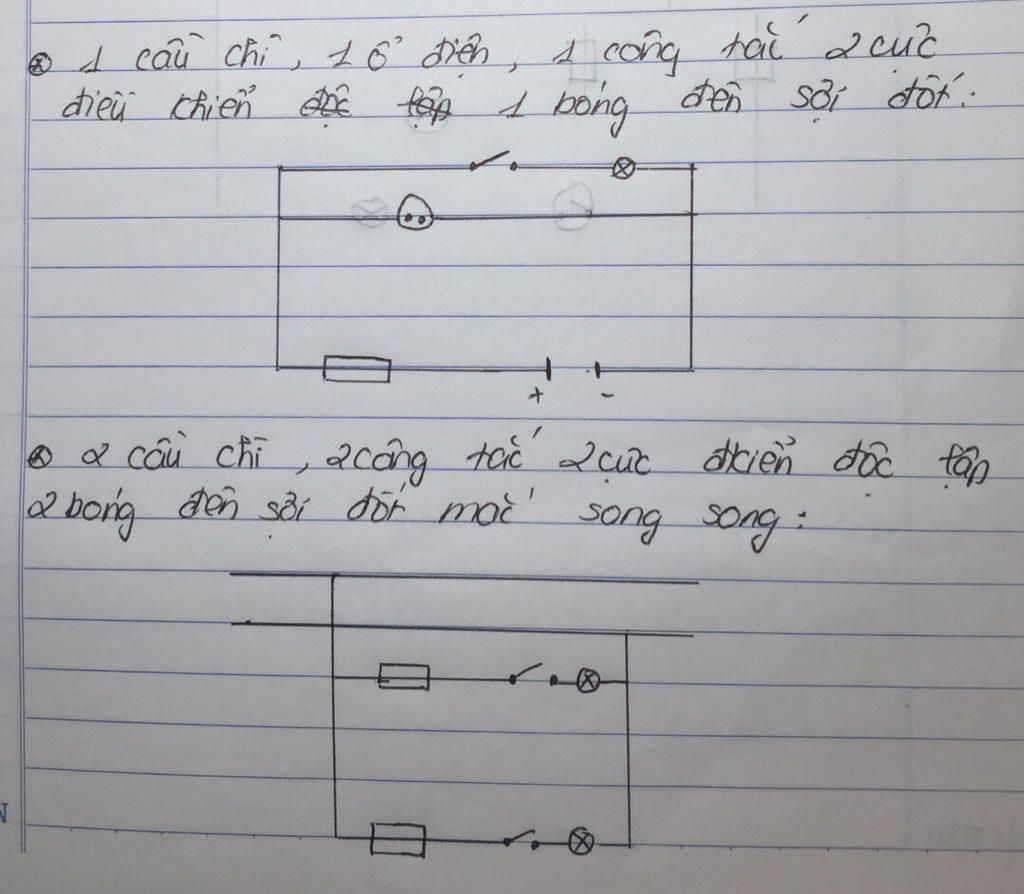 1 cầu chì, 1 ổ điện, 1 công tắc 2 cực
điều khiển độc lập 1 bóng đèn sợi đốt:
+ -
2 cầu chì, 2 công tắc 2 cực đkiển độc lập
2 bóng đèn sợi đốt mắc song song:
N